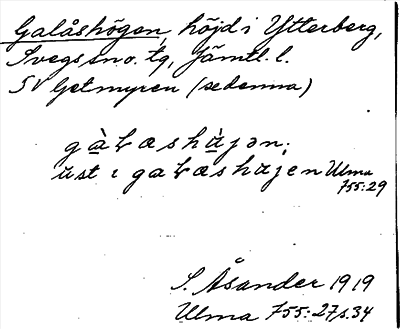 Galåshögen, höjd i Ytterberg,
Svegs sno. tg, Jämtl. l.
SV Getmyren (sedenna)
gàɫæshὰjən;
ust ι gaɫæshαjen Ulma
755:29
S. Åsander 1919
Ulma 755:27, s. 34